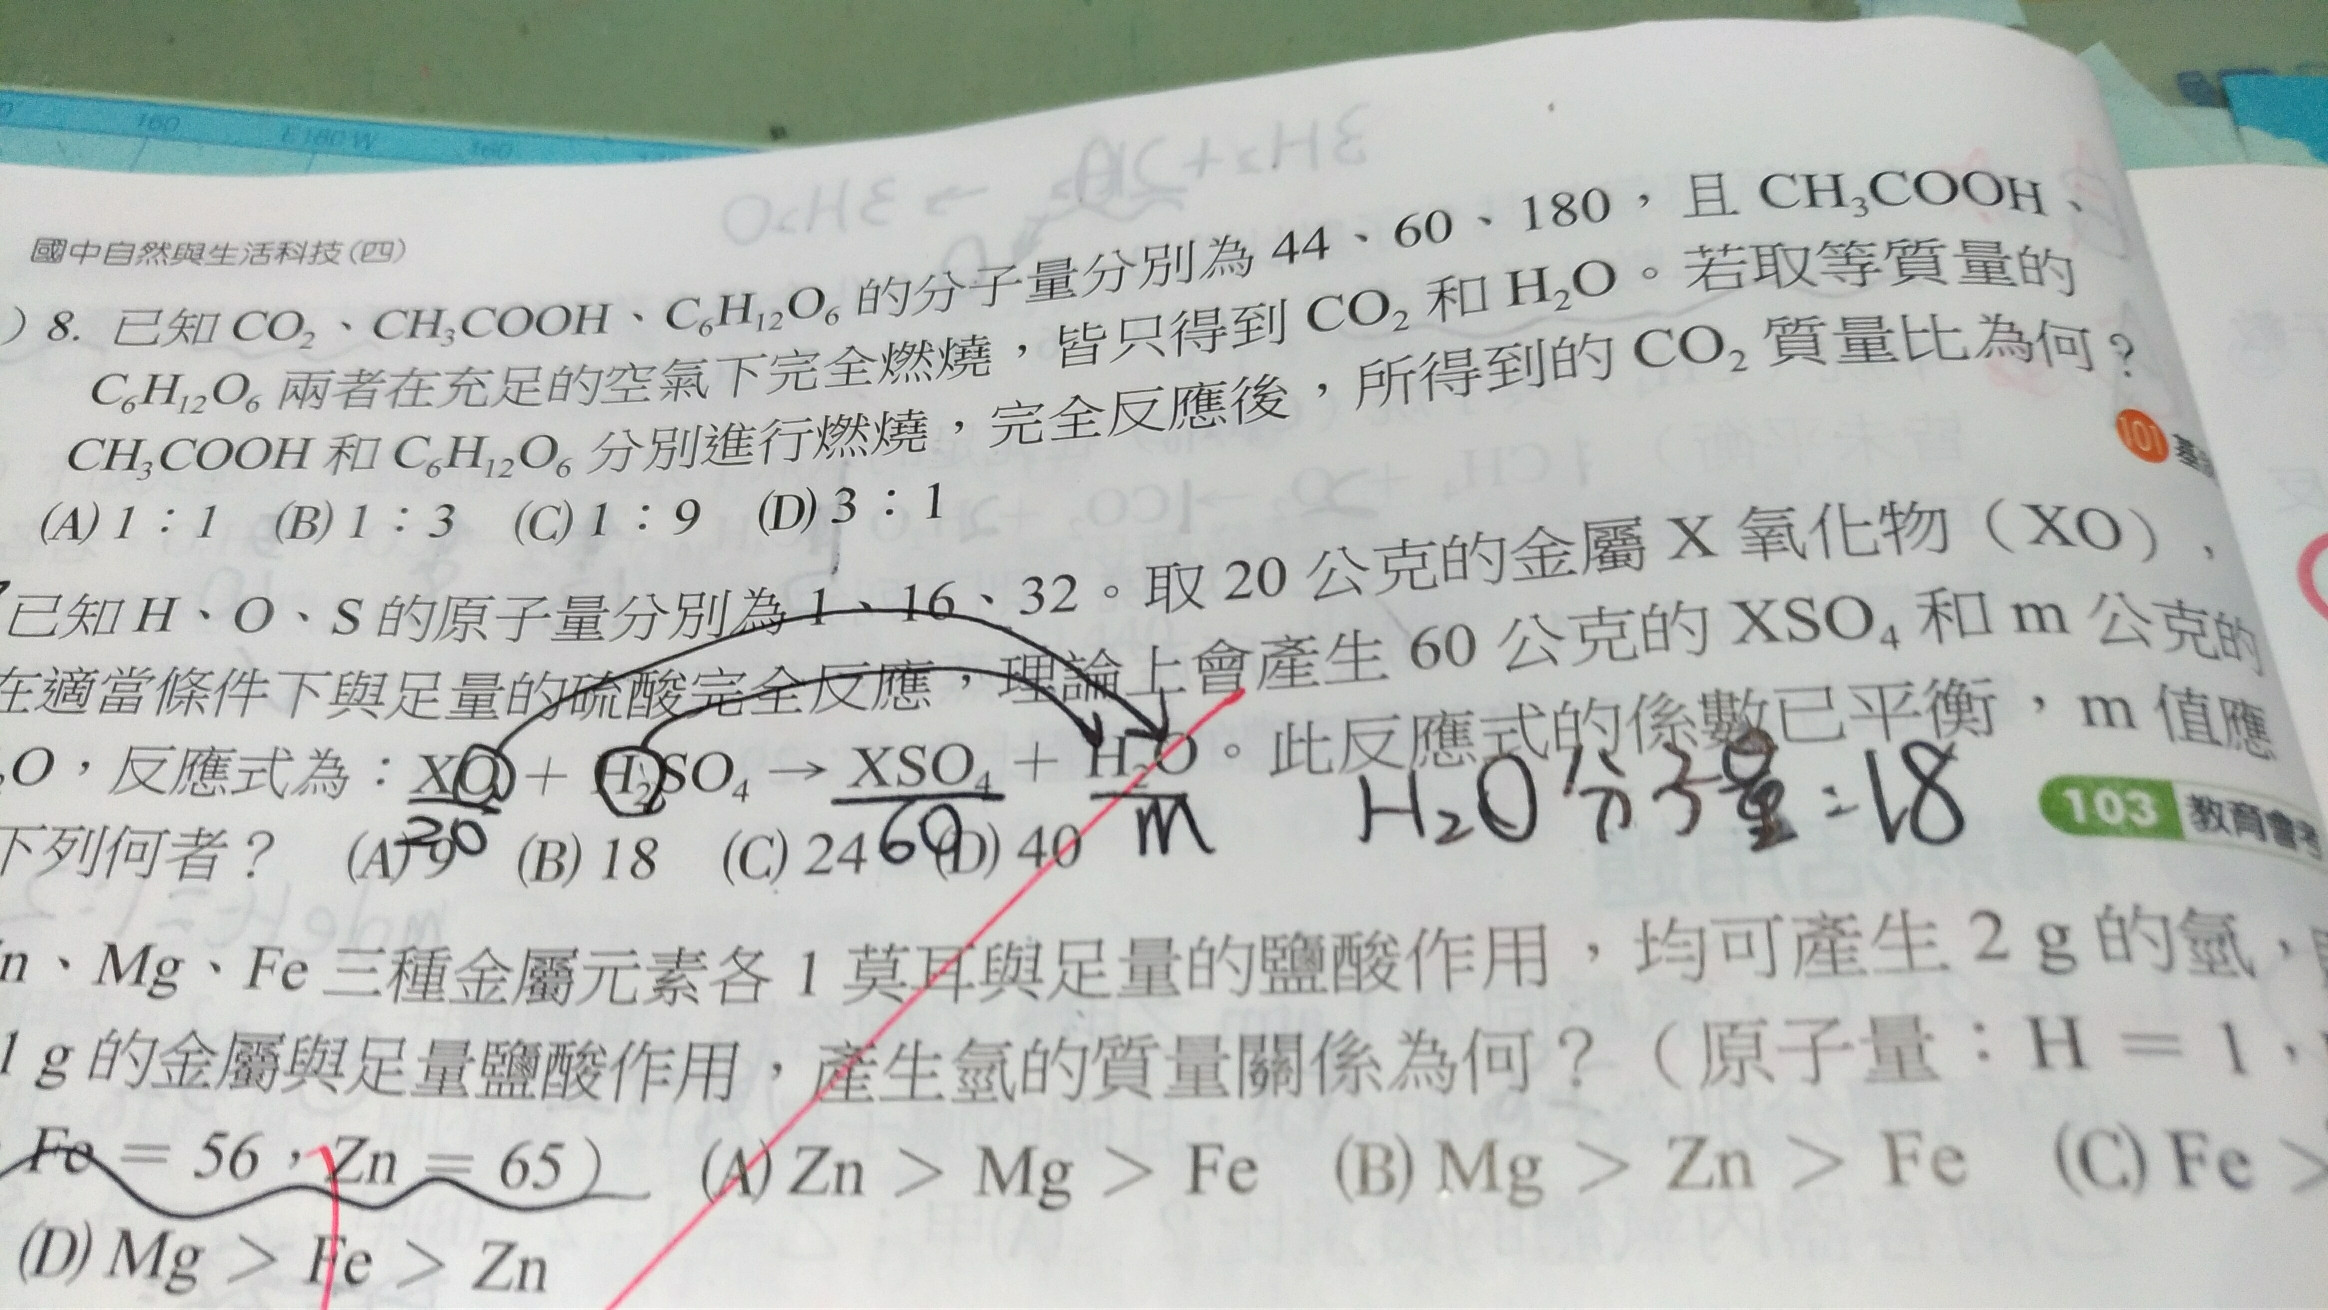 國中自然與生活科技(四)
) 8. 已知 CO₂、CH₃COOH、C₆H₁₂O₆ 的分子量分別為 44、60、180，且 CH₃COOH、
C₆H₁₂O₆ 兩者在充足的空氣下完全燃燒，皆只得到 CO₂ 和 H₂O。若取等質量的
CH₃COOH 和 C₆H₁₂O₆ 分別進行燃燒，完全反應後，所得到的 CO₂ 質量比為何？
101
(A) 1：1 (B) 1：3 (C) 1：9 (D) 3：1
已知 H、O、S 的原子量分別為 1、16、32。取 20 公克的金屬 X 氧化物（XO），
在適當條件下與足量的硫酸完全反應，理論上會產生 60 公克的 XSO₄ 和 m 公克的
O，反應式為：XO + H₂SO₄ → XSO₄ + H₂O。此反應式的係數已平衡，m 值應
20 60 m H₂O分子量=18
下列何者？ (A) 9 (B) 18 (C) 24 (D) 40
103 教育會考
n、Mg、Fe 三種金屬元素各 1 莫耳與足量的鹽酸作用，均可產生 2 g 的氫，
1 g 的金屬與足量鹽酸作用，產生氫的質量關係為何？（原子量：H = 1，
Fe = 56，Zn = 65） (A) Zn > Mg > Fe (B) Mg > Zn > Fe (C) Fe >
(D) Mg > Fe > Zn